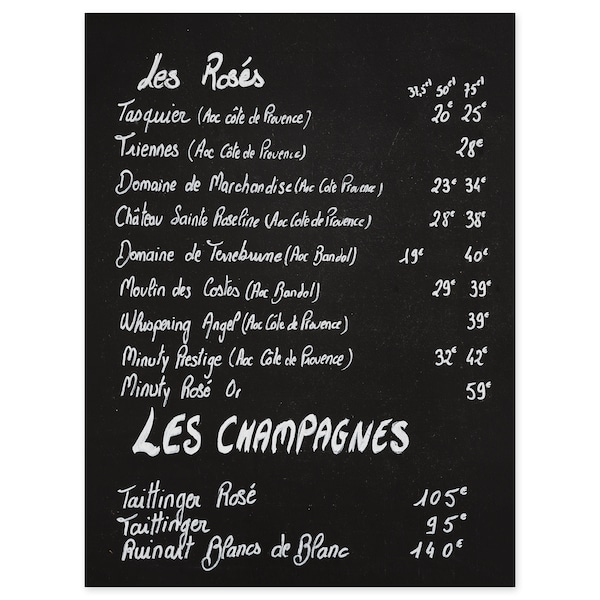 Les Rosés
37,5cl 50cl 75cl
Tasquier (Aoc côte de Provence) 20€ 25€
Triennes (Aoc Côte de Provence) 28€
Domaine de Marchandise (Aoc Côte Provence) 23€ 34€
Château Sainte Roseline (Aoc Côte de Provence) 28€ 38€
Domaine de Terrebrune (Aoc Bandol) 19€ 40€
Moulin des Costes (Aoc Bandol) 29€ 39€
Whispering Angel (Aoc Côte de Provence) 39€
Minuty Prestige (Aoc Côte de Provence) 32€ 42€
Minuty Rosé Or 59€
LES CHAMPAGNES
Taittinger Rosé 105€
Taittinger 95€
Ruinart Blancs de Blanc 140€